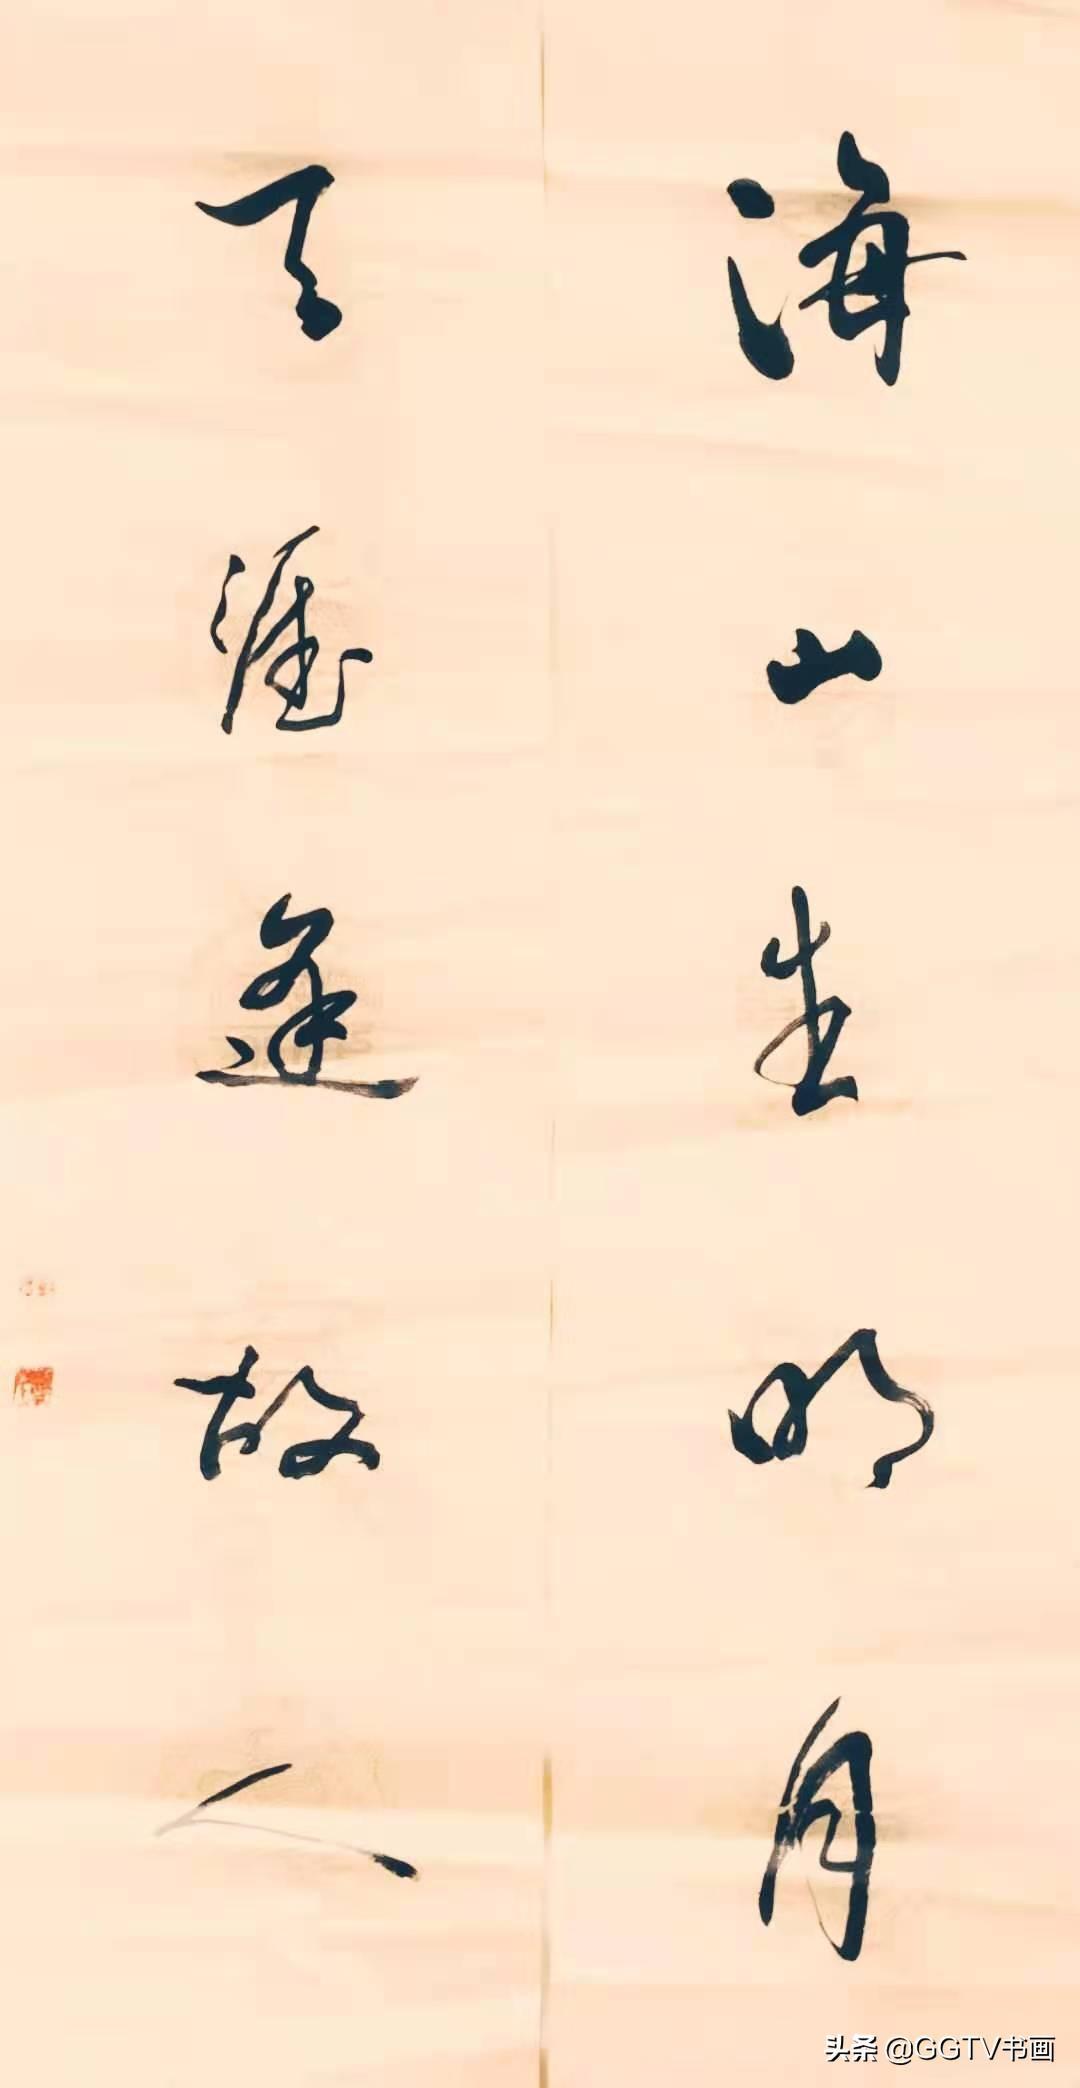 海山生明月
天涯逢故人
头条 @GGTV书画